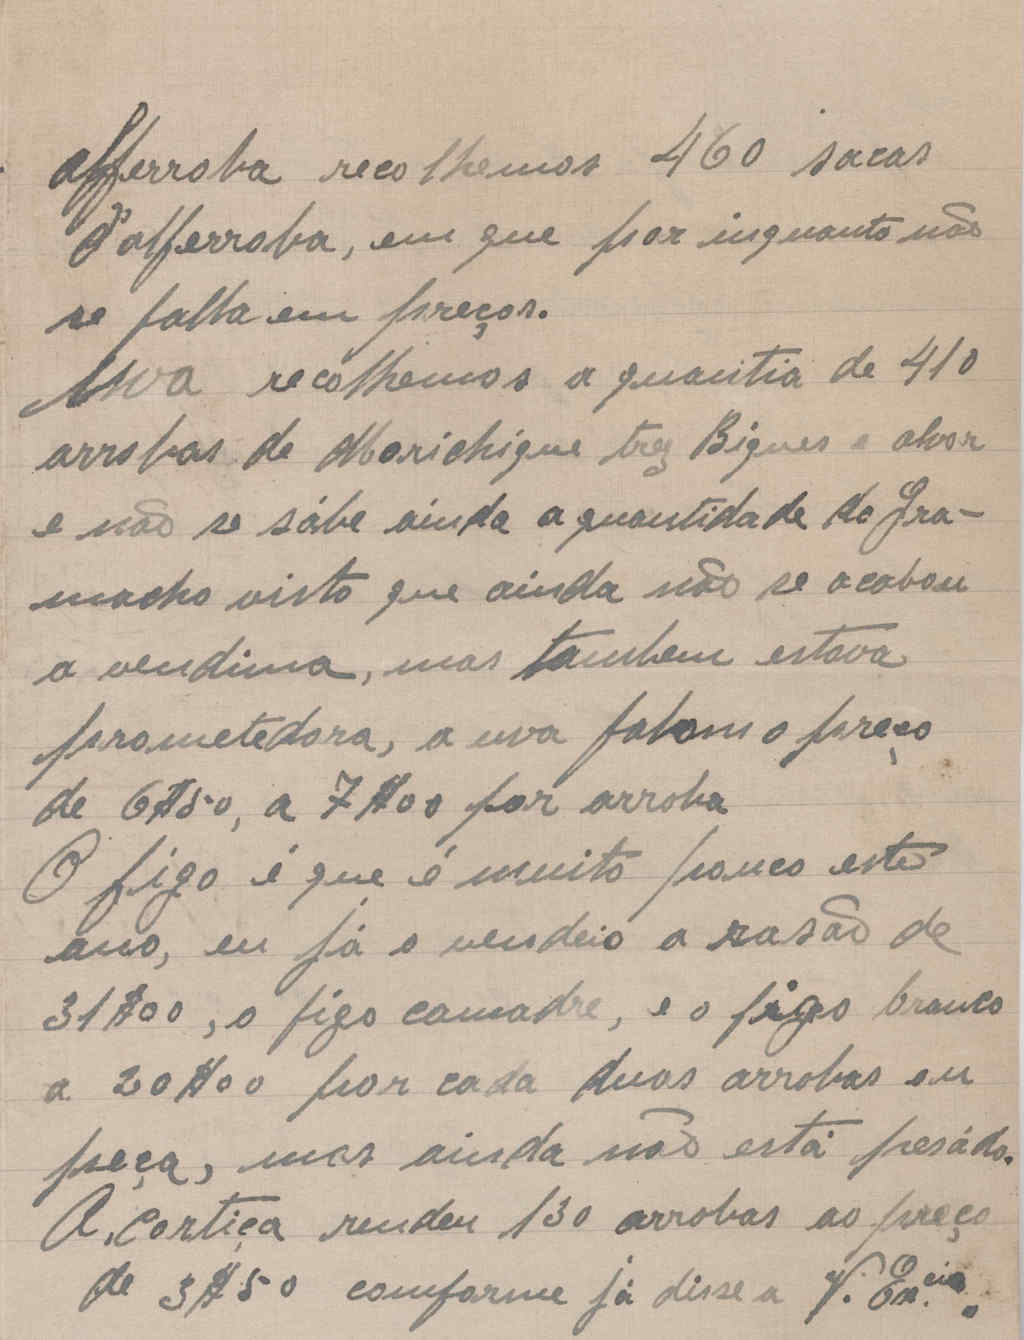 Afferroba recolhemos 460 sacas
d'alferroba, em que por inquanto não
se falla em preços.
Uva recolhemos a quantia de 410
arrobas de Morichique trez Bigues e alvor
e não se sábe ainda a quantidade do Gra-
macho visto que ainda não se acabou
a vendima, mas tambem estava
prometedora, a uva falam o preço
de 6$50, a 7$00 por arroba
O figo é que é muito pouco este
ano, eu já o vendeio a rasão de
31$00, o figo comadre, e o figo branco
a 20$00 por cada duas arrobas ou
peça, mas ainda não está pesádo.
A, Cortiça rendeu 130 arrobas ao preço
de 3$50 comforme já disse a V. Ex.cia.